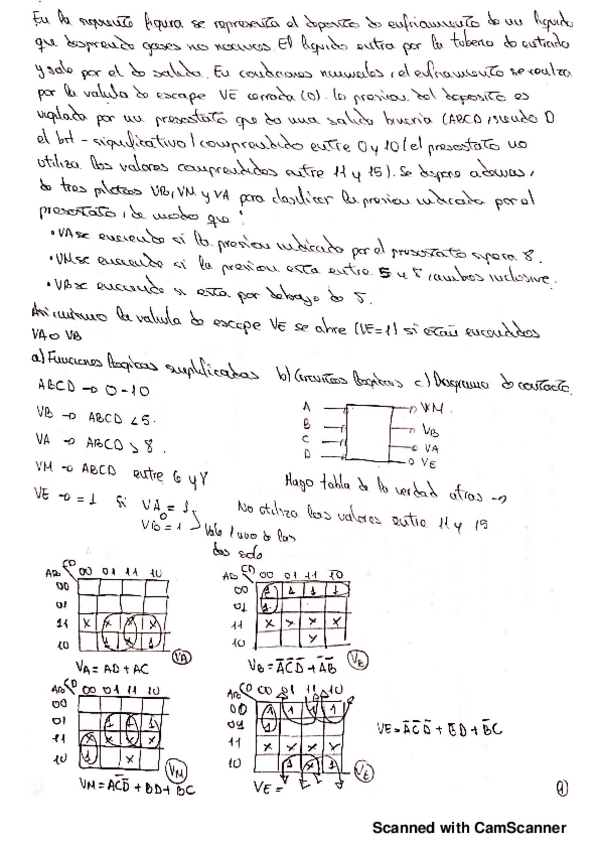 En la siguiente figura se representa el deposito de enfriamiento de un liquido
que desprende gases no nocivos El liquido entra por la tuberia de entrada
y sale por el de salida. En condiciones normales, el enfriamiento se realiza
por la valvula de escape VE cerrada (0). la presion del deposito es
vigilada por un presostato que da una salida binaria (ABCD, siendo D
el bit - significativo) comprendido entre 0 y 10 (el presostato no
utiliza los valores comprendidos entre 11 y 15). Se dispone ademas,
de tres pilotos VB, VM y VA para clasificar la presion indicada por el
presostato, de modo que:
• VA se enciende si la presion indicada por el presostato supera 8.
• VM se enciende si la presion esta entre 5 y 8, ambos inclusive.
• VB se enciende si esta por debajo de 5.
Asi mismo la valvula de escape VE se abre (VE=1) si estan encendidos
VA o VB
a) Funciones logicas simplificadas b) Circuitos logicos c) Diagrama de contacto.
ABCD → 0-10
VB → ABCD < 5.
VA → ABCD > 8.
VM → ABCD entre 6 y 8
VE → = 1 si VA = 1
o
VB = 1
Vale 1 uno de los
dos solo
A
B
C
D
VM.
VB
VA
VE
Hago tabla de la verdad atras →
No utilizo los valores entre 11 y 15
AB CD 00 01 11 10
00
01
11 x x x x
10 1 x 1
VA = AD + AC
VA
AB CD 00 01 11 10
00 1 1 1 1
01 1
11 x x x x
10 x
VB = A̅C̅D̅ + A̅B̅
VB
AB CD 00 01 11 10
00
01 1 1 1
11 x x x x
10 1 x
VM = AC̅D̅ + BD + BC
VM
AB CD 00 01 11 10
00 1 1 1 1
01 1
11 x x x x
10 1 x 1
VE =
VE
VE = A̅C̅D̅ + B̅D + B̅C
1
Scanned with CamScanner